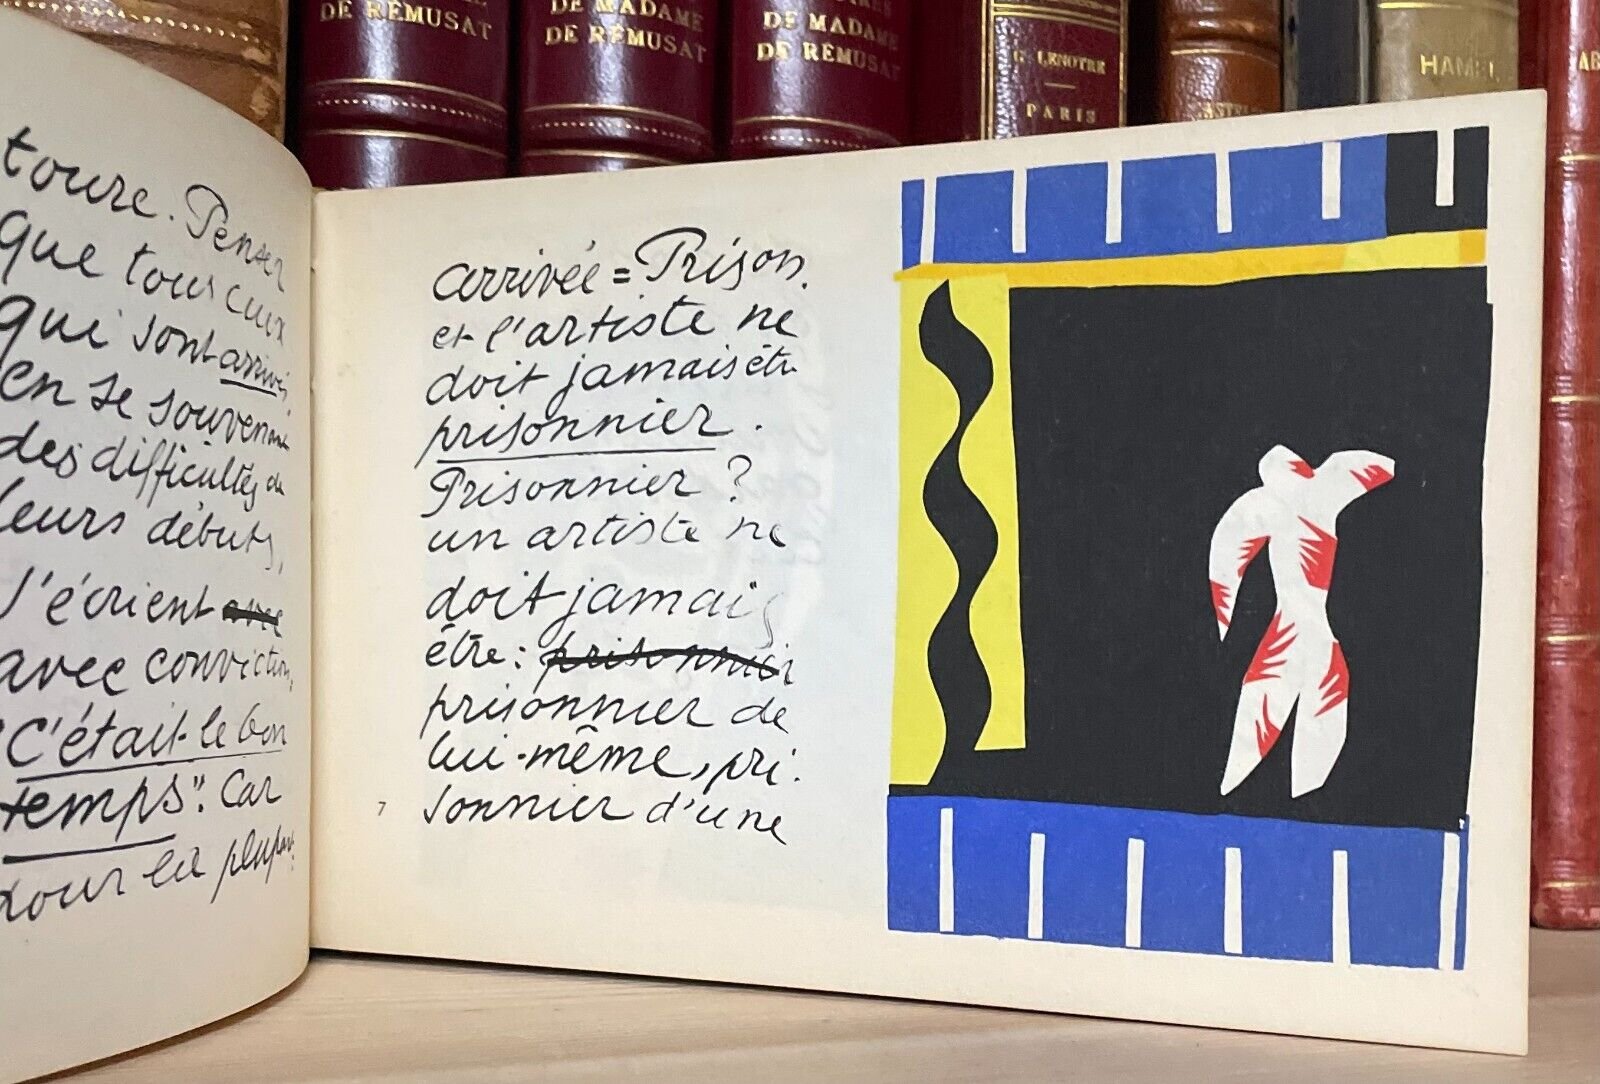 DE RÉMUSAT
DE MADAME
DE RÉMUSAT
DE MADAME
DE RÉMUSAT
G. LENOTRE
PARIS
HAMEL
AB
toure. Penser
que tous ceux
qui sont arrivés,
en se souvenant
des difficultés de
leurs débuts,
s'écrient avec
avec conviction,
"C'était le bon
temps". Car
pour la plupart:
arrivée = Prison.
et l'artiste ne
doit jamais être
prisonnier.
Prisonnier ?
un artiste ne
doit jamais
être: prisonnier
prisonnier de
lui-même, pri-
sonnier d'une
7